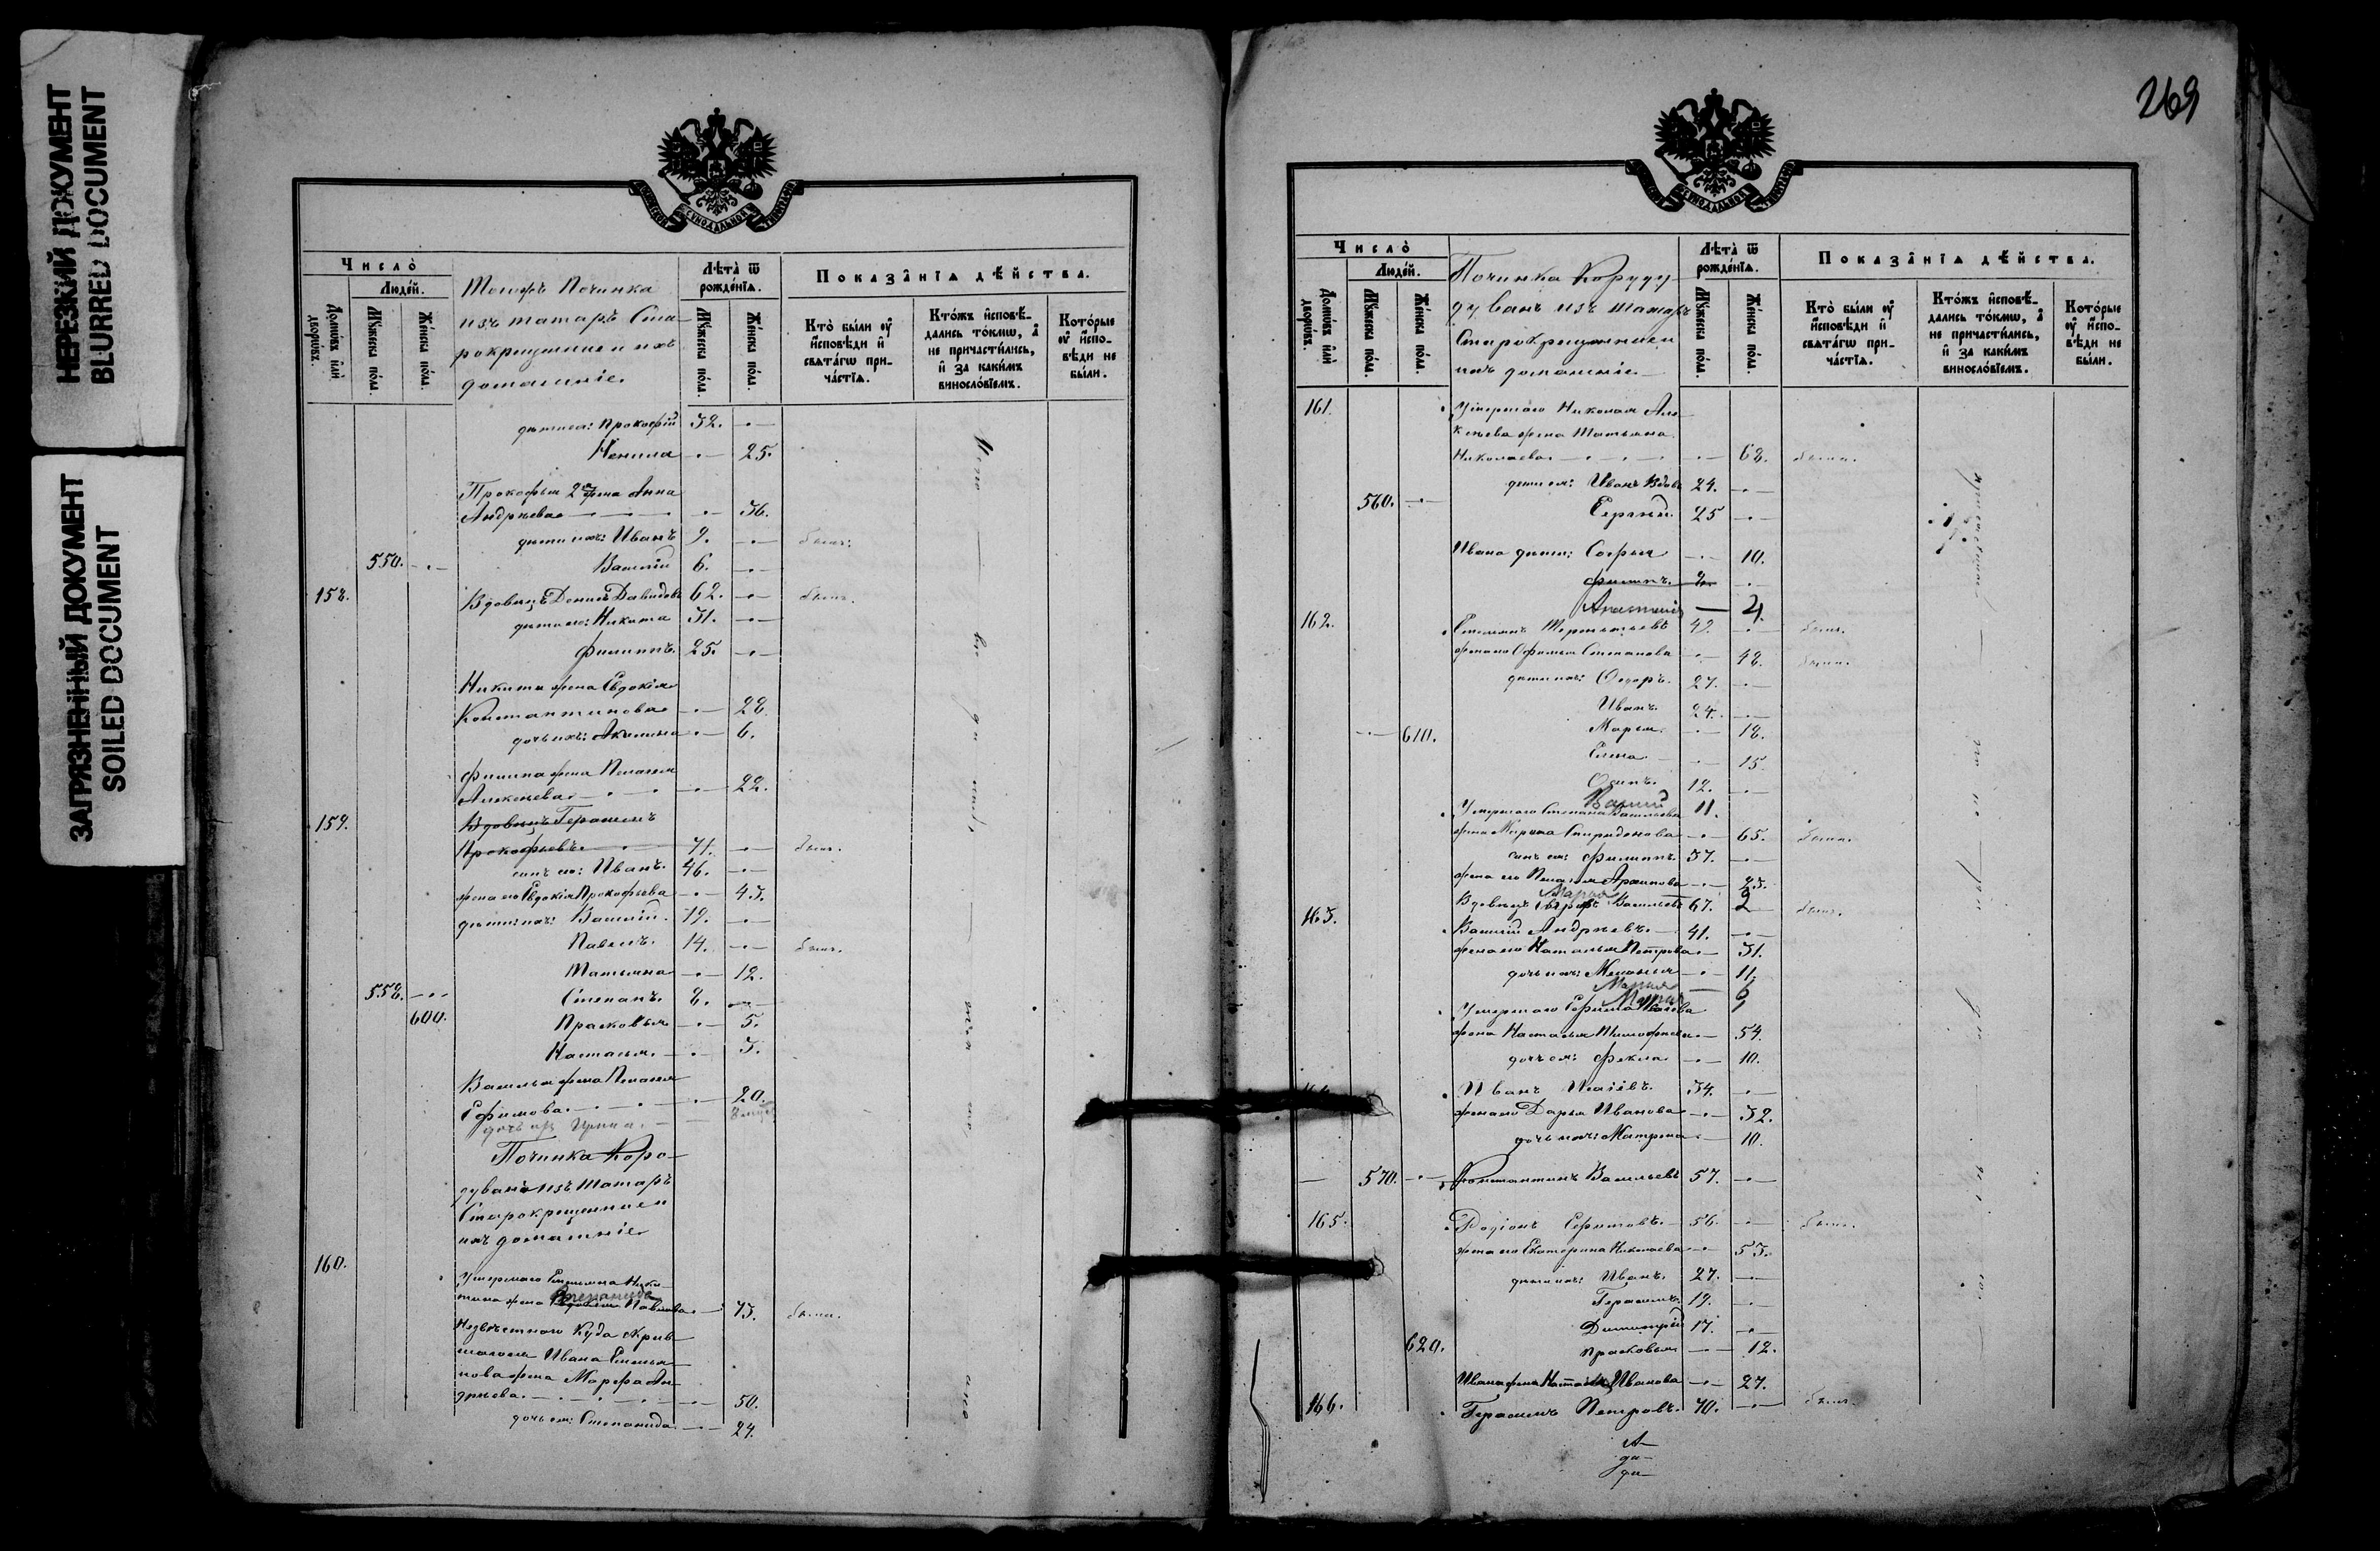 НЕРЕЗКИЙ ДОКУМЕНТ
BLURRED DOCUMENT
ЗАГРЯЗНЕННЫЙ ДОКУМЕНТ
SOILED DOCUMENT
СѴНОДАЛЬНОЙ
Число
Людей.
Домовъ или дворовъ.
Мужеска полу.
Женска полу.
Тогожъ Починка
изъ татаръ Ста
рокрещенные и ихъ
домашніе.
Лѣта ѿ рожденїѧ.
Мужеска полу.
Женска полу.
Показанїѧ дѣйства.
Кто были оу исповѣди и свѧтагѡ причастїѧ.
Ктожъ исповѣдались токмѡ, а не причастились, и за какимъ винословїемъ.
Которые оу исповѣди не были.
дѣти ея: Прокофій 32. -
Ненила - 25.
Прокофья 2я жена Анна
Андреева - 36.
дѣти ихъ: Иванъ 9. - былъ.
550. - Василій 6. -
158. Вдовецъ Денисъ Давидовъ 62. - былъ.
дѣти его: Никита 31. -
Филиппъ 25. -
Никиты жена Евдокія
Константинова - 28
дочь ихъ: Акилина - 6.
Филиппа жена Пелагея
Алексѣева - 22.
159. Вдовецъ Герасимъ
Прокофьевъ 71. - былъ.
сынъ его: Иванъ 46. -
жена его Евдокія Прокофьева - 43.
дѣти ихъ: Василій 19. -
Павелъ. 14. - былъ.
Татьяна - 12.
558. - Степанъ. 8. -
600. Прасковья - 5.
Настасья. - 3.
Василья жена Пелагея
Ефимова. - 20.
дочь их Ирина.
Починка Кору
дуванъ изъ Татаръ
Старокрещенные и
ихъ домашніе
160.
Умершаго Емельяна Ники
тина жена Степанида Павлова - 73. была.
Неизвѣстного куда скрыв
шагося Ивана Емелья
нова жена Марфа Ан
дреева. - 50.
дочь ея: Степанида - 24.
269
СѴНОДАЛЬНОЙ
Число
Людей.
Домовъ или дворовъ.
Мужеска полу.
Женска полу.
Починка Коруду
дуванъ изъ татаръ
Старокрещенные и
ихъ домашніе
Лѣта ѿ рожденїѧ.
Мужеска полу.
Женска полу.
Показанїѧ дѣйства.
Кто были оу исповѣди и свѧтагѡ причастїѧ.
Ктожъ исповѣдались токмѡ, а не причастились, и за какимъ винословїемъ.
Которые оу исповѣди не были.
161. Умершаго Николая Але
ксѣева жена Татьяна
Николаева - 68. была.
дѣти ея: Иванъ Вдовъ 24. -
560. - Сергѣй 25 -
Ивана дѣти: Софья - 10.
Филиппъ. 2. -
Анастасія - 4.
162. Емельянъ Терентьевъ 49. - былъ.
жена его Ефимья Степанова - 48. была.
дѣти ихъ: Ѳедоръ. 27. -
Иванъ. 24. -
- 610. Марья. - 18.
Елена - 15.
Осипъ. 12. -
Василій 11.
Умершаго Степана Васильева
жена Марина Спиридонова - 65. была.
сынъ ея: Филиппъ. 37. -
жена его Пелагея - 23.
Марья 2
163. Вдовецъ Васильевъ 67. - былъ.
Василій Андреевъ. 41. -
жена его Наталья Петрова - 31.
дочь ихъ: Меланья - 11.
Марья
Умершаго Ефима
жена Настасья Тимофѣева - 54.
дочь ея: Фекла - 10.
Иванъ 34. -
жена его Дарья Иванова - 32.
дочь ихъ: Матрена - 10.
- 570. - Константинъ Васильевъ 57. -
165. Родіонъ Ефимовъ. 56. - былъ.
жена его Екатерина Николаева - 53.
дѣти ихъ: Иванъ. 27. -
Герасимъ. 19. -
Димитрій 17. -
620. Прасковья - 12.
Ивана жена Наталья Иванова - 27.
166. Герасимъ Петровъ. 70. - былъ.